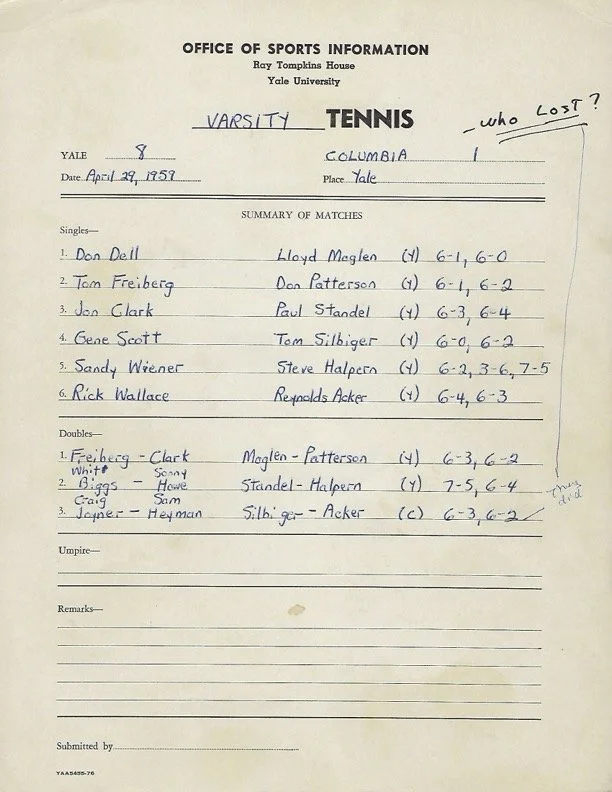 OFFICE OF SPORTS INFORMATION
Ray Tompkins House
Yale University
VARSITY TENNIS
who LOST?
YALE 8 COLUMBIA 1
Date April 29, 1959 Place Yale
SUMMARY OF MATCHES
Singles—
1. Don Dell Lloyd Moglen (Y) 6-1, 6-0
2. Tom Freiberg Don Patterson (Y) 6-1, 6-2
3. Jon Clark Paul Standel (Y) 6-3, 6-4
4. Gene Scott Tom Silbiger (Y) 6-0, 6-2
5. Sandy Wiener Steve Halpern (Y) 6-2, 3-6, 7-5
6. Rick Wallace Reynolds Acker (Y) 6-4, 6-3
Doubles—
1. Freiberg - Clark Moglen - Patterson (Y) 6-3, 6-2
Whit Sonny
2. Biggs - Howe Standel - Halpern (Y) 7-5, 6-4
Craig Sam
they did
3. Joyner - Heyman Silbiger - Acker (C) 6-3, 6-2
Umpire—
Remarks—
Submitted by
YAA5455-76